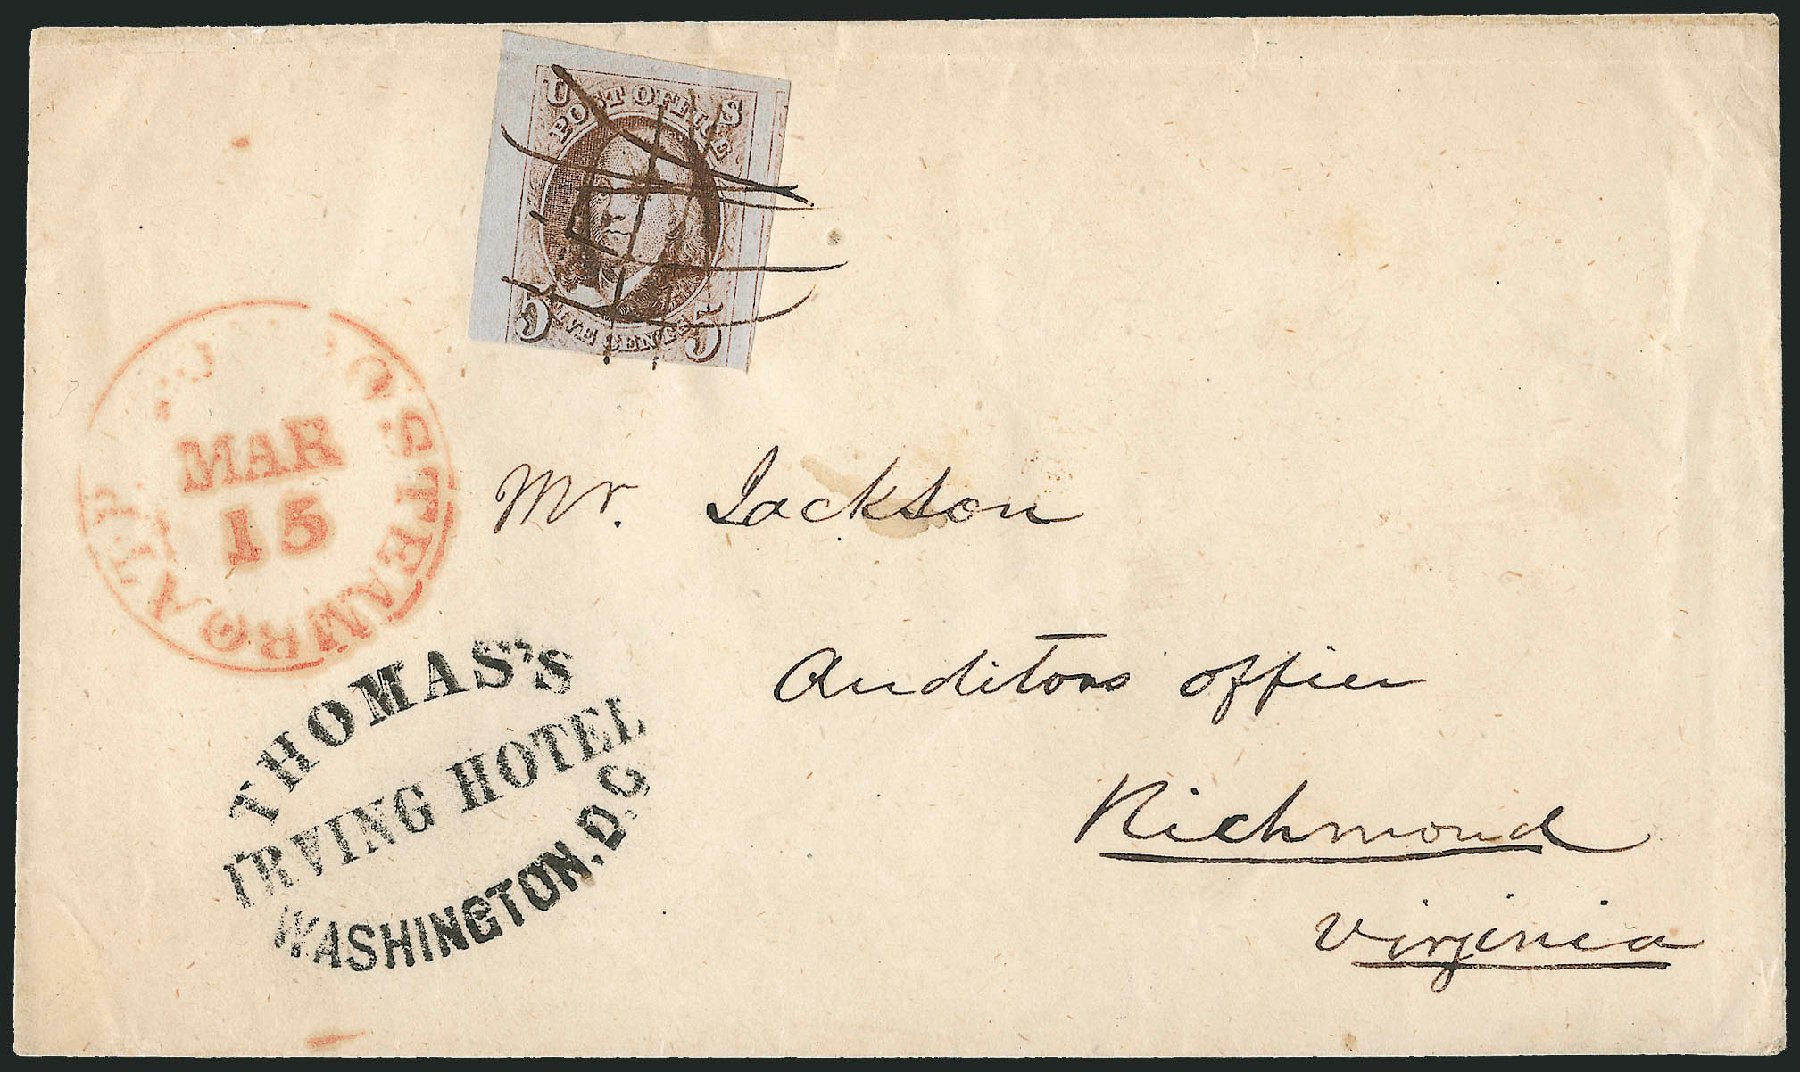 U S
POST OFFICE
FIVE CENTS
5 5
MAR
15
STEAMBOAT
Mr. Jackson
THOMAS'S
IRVING HOTEL
WASHINGTON, D.C
Auditors office
Richmond
Virginia